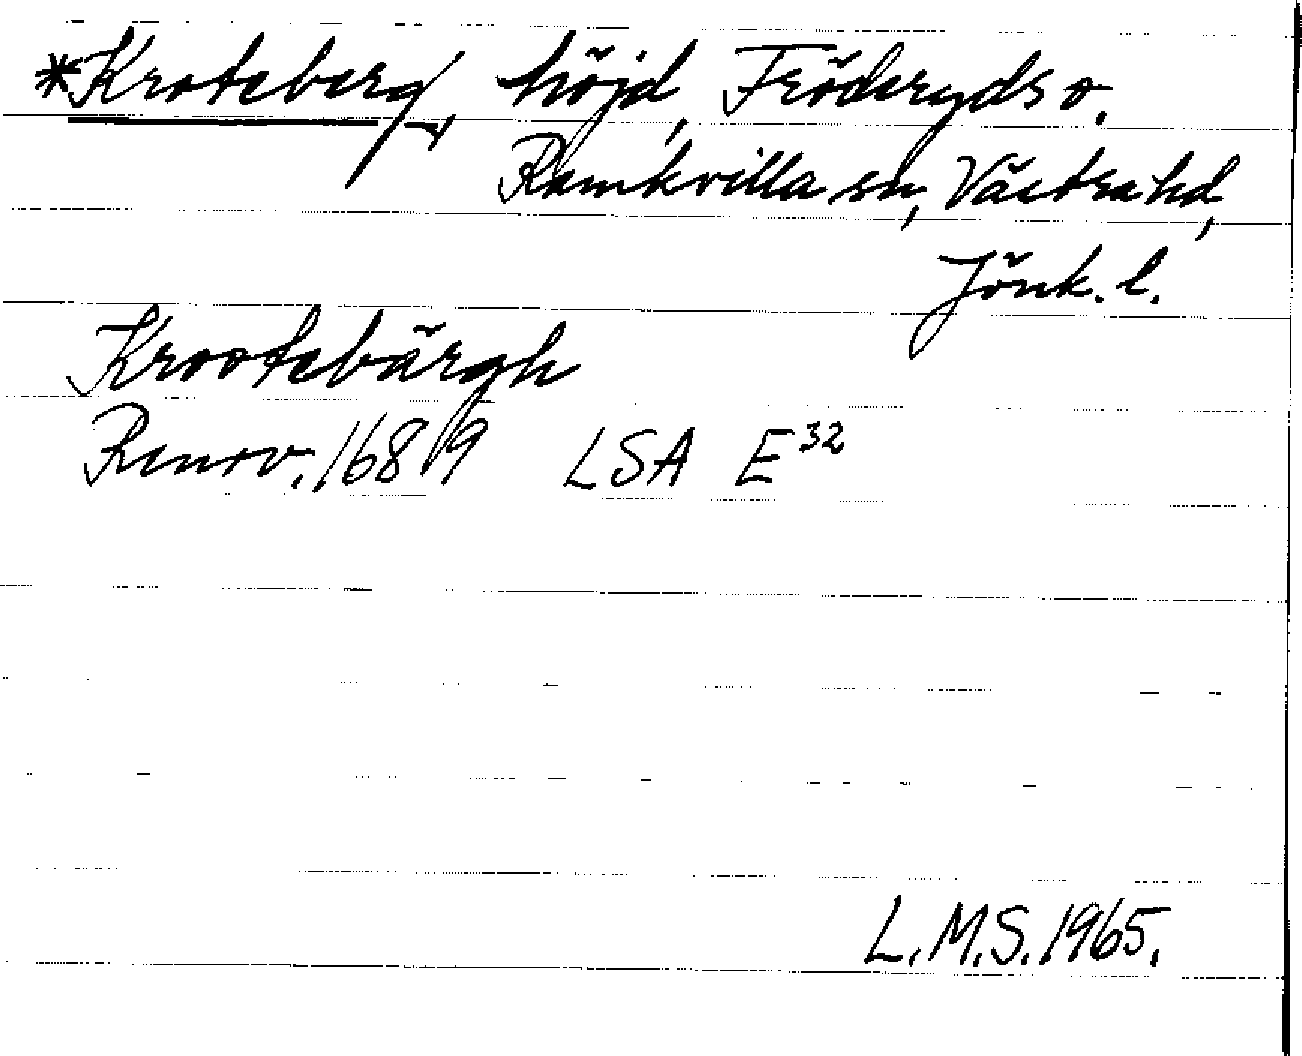 *Kroteberg, höjd, Fröderyds o.
Ramkvilla sn, Västra hd,
Jönk. l.
Krootebärgh
Renov. 1689 LSA E³²
L.M.S. 1965.